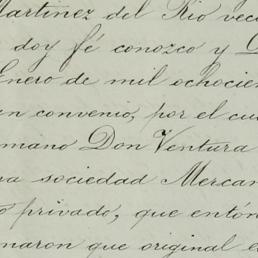 Martinez del Rio vec
doy fé conozco y D
Enero de mil ochocien
un convenio, por el cu
rmano Don Ventura
na sociedad Mercan
o privado, que entón
maron que original e